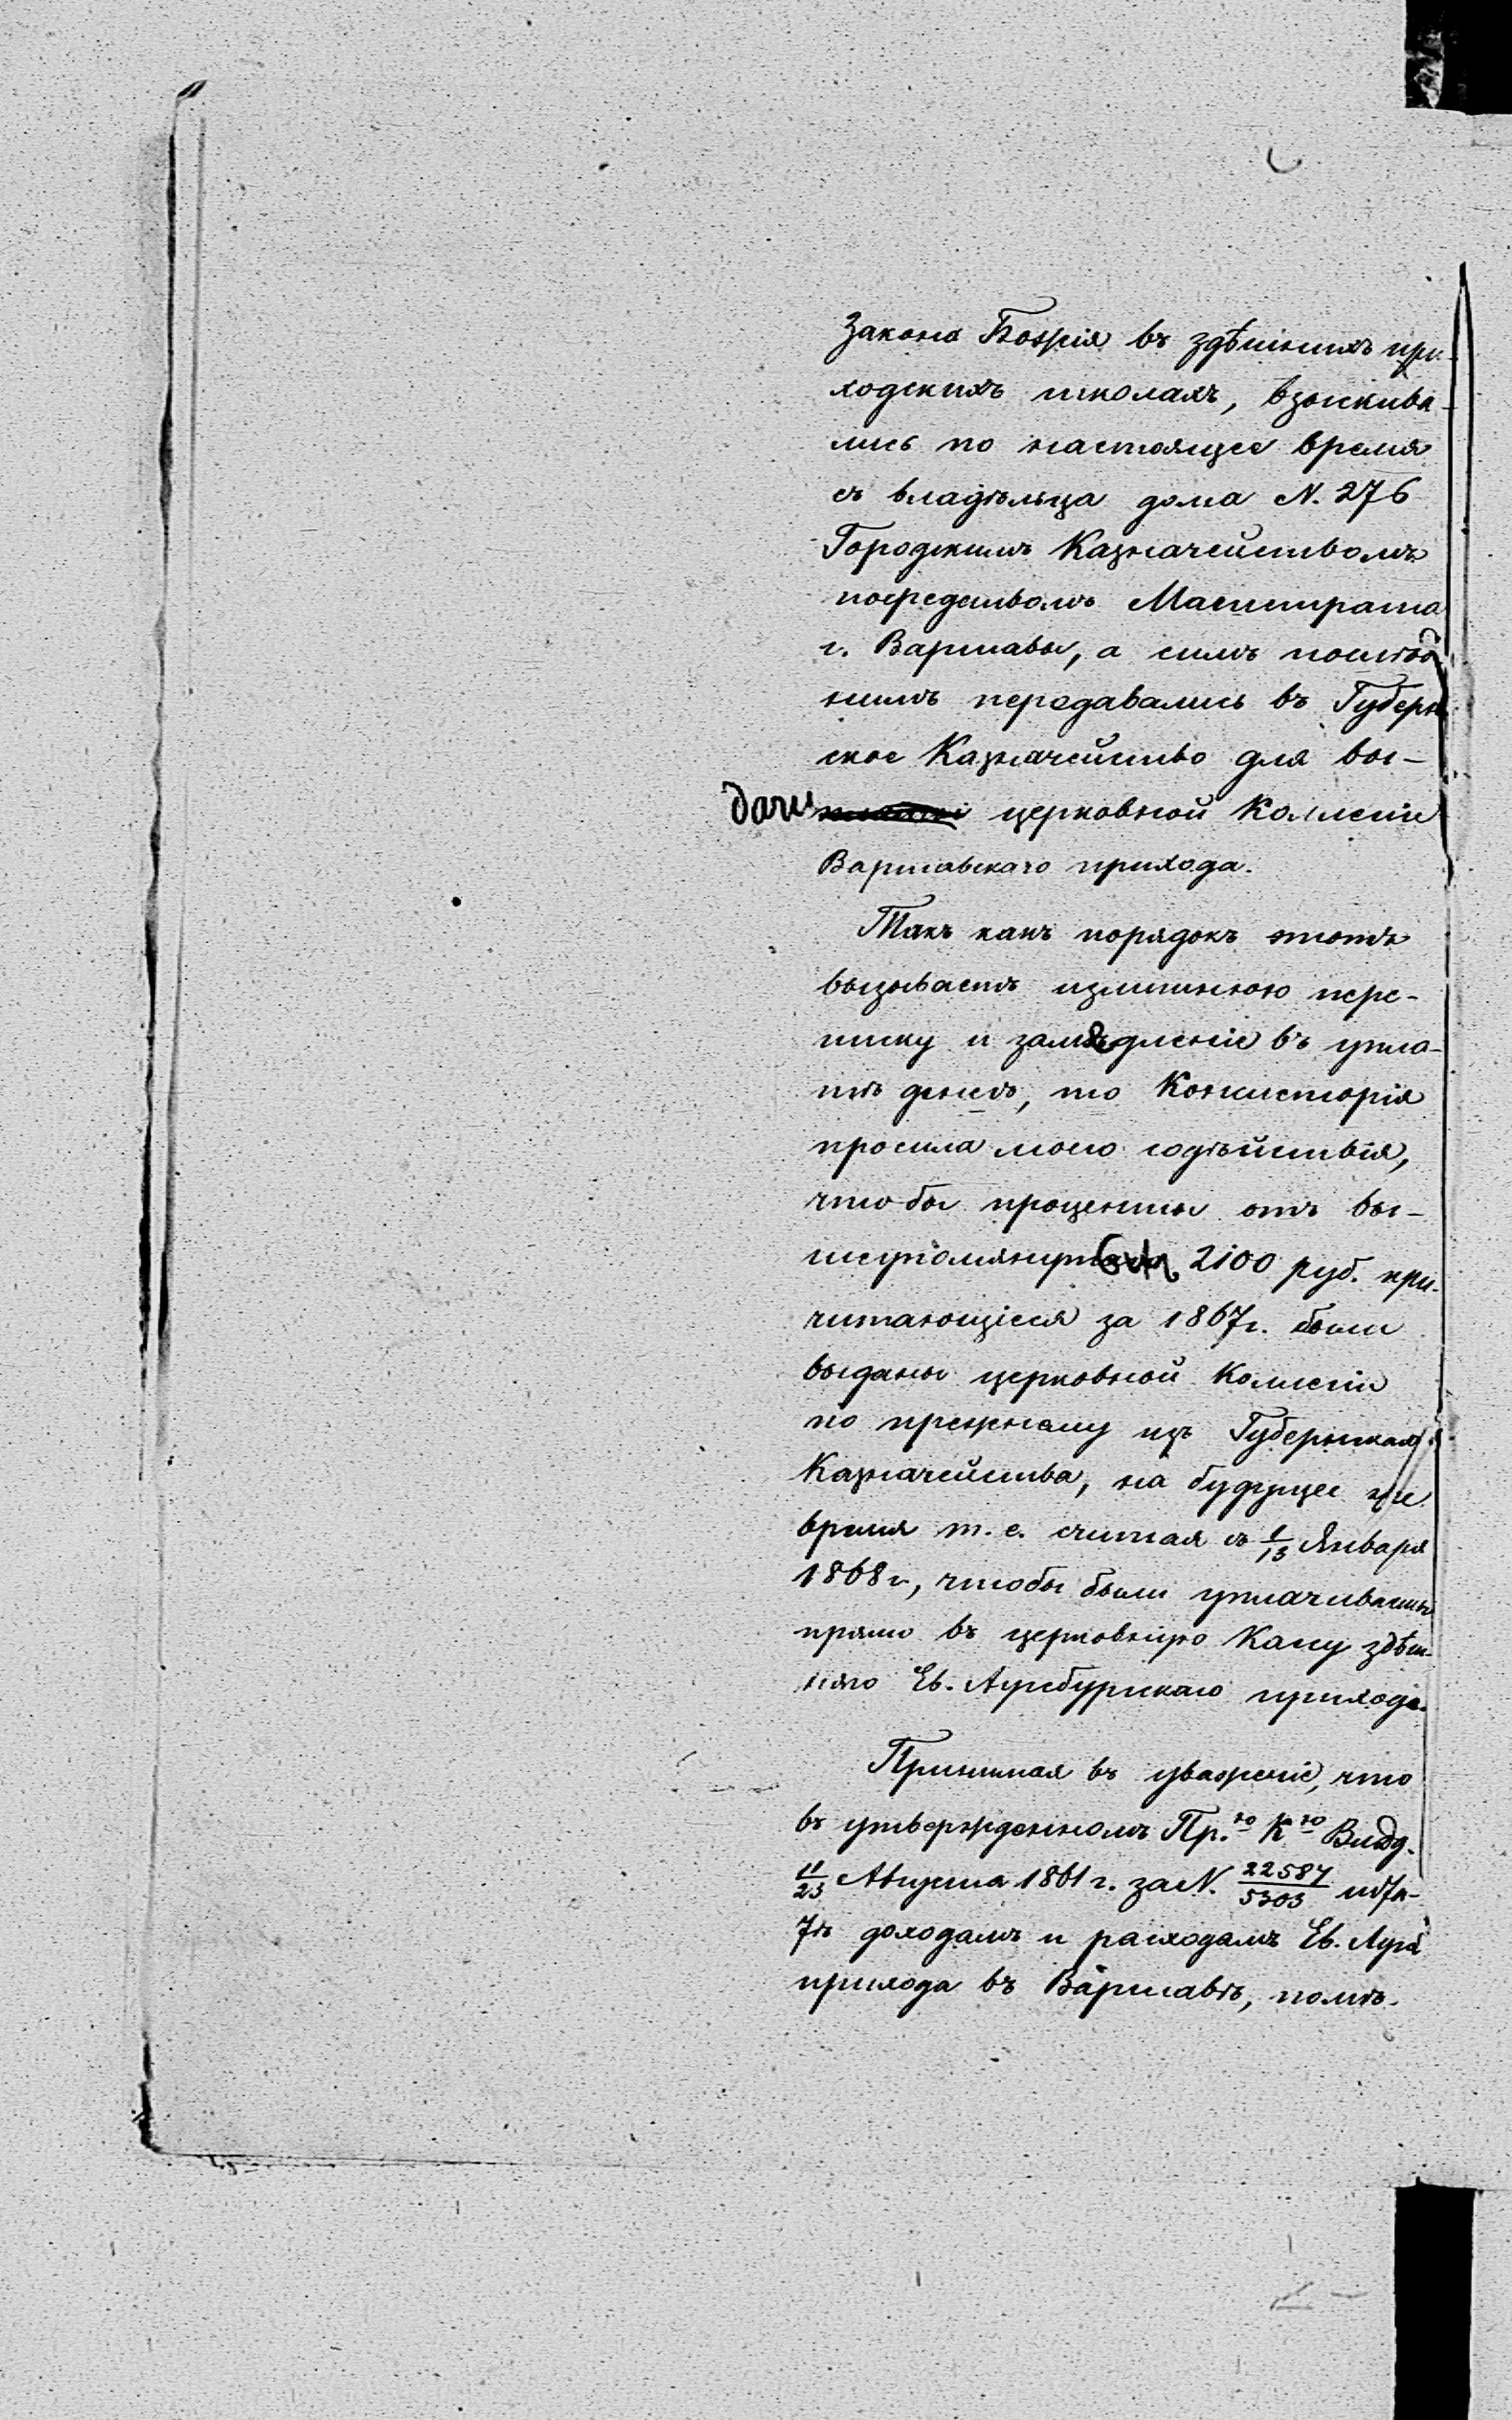 Закона Божія въ здѣшнихъ при-
ходскихъ школахъ, взыскива-
лись по настоящее время
съ владѣльца дома N. 276
Городскимъ Казначействомъ
посредствомъ Магистрата
г. Варшавы, а симъ послѣд
нимъ передавались въ Губерн
ское Казначейство для вы-
дачи церковной Коллегіи
Варшавскаго прихода.
Такъ какъ порядокъ этотъ
вызываетъ излишнюю пере-
писку и замедленіе въ упла-
тѣ денегъ, то Консисторія
просила моего содѣйствія,
чтобы проценты отъ вы-
шеупомянутыхъ 2100 руб. при-
читающіеся за 1867 г. были
выданы церковной Коллегіи
по прежнему изъ Губернскаго
Казначейства, на будущее же
время т. е. считая съ 1/13 Января
1868 г., чтобы были уплачиваемы
прямо въ церковную Кассу здѣш-
няго Ев. Аугсбургскаго прихода.
Принимая въ уваженіе, что
въ утвержденномъ Пр.ю К ю
11/23 Августа 1861 г. за N. 22587/5303 штa-
тѣ доходамъ и расходамъ Ев. Ауг.
прихода въ Варшавѣ, помѣ-